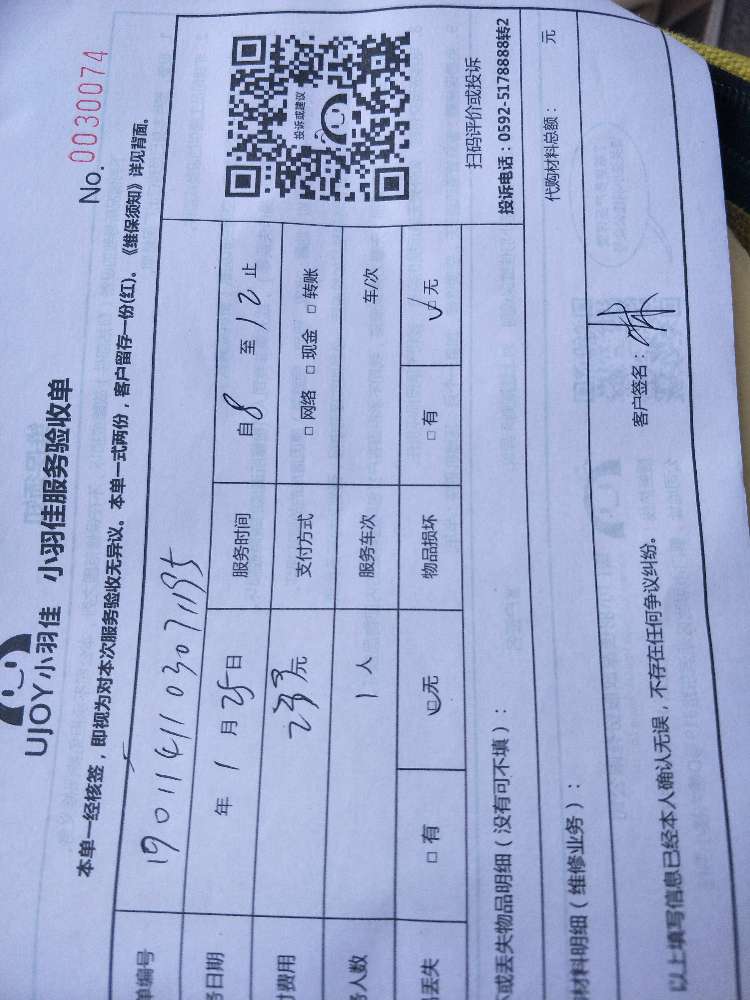 No. 0030074
UJOY小羽佳 小羽佳服务验收单
本单一经核签，即视为对本次服务验收无异议。本单一式两份，客户留存一份(红)。《维保须知》详见背面。
单编号 1901141103071195
务日期 年 1 月 25 日 服务时间 自 8 至 12 止
付费用 元 支付方式 □ 网络 □ 现金 □ 转账
务人数 1 人 服务车次 车/次
品丢失 □ 有 □ 无 物品损坏 □ 有 □ 无
投诉或建议
扫码评价或投诉
投诉电话：0592-5178888转2
或丢失物品明细（没有可不填）：
材料明细（维修业务）： 代购材料总额： 元
以上填写信息已经本人确认无误，不存在任何争议纠纷。 客户签名：